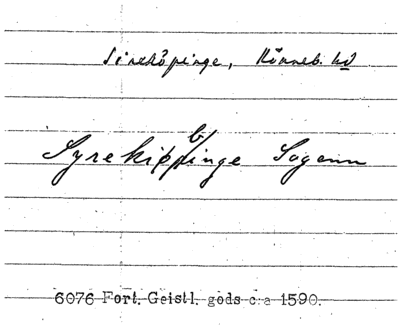 Sireköpinge, Rönneb. hd
Syrekippinge Sogenn
b
6076 Fort. Geistl. gods c:a 1590.